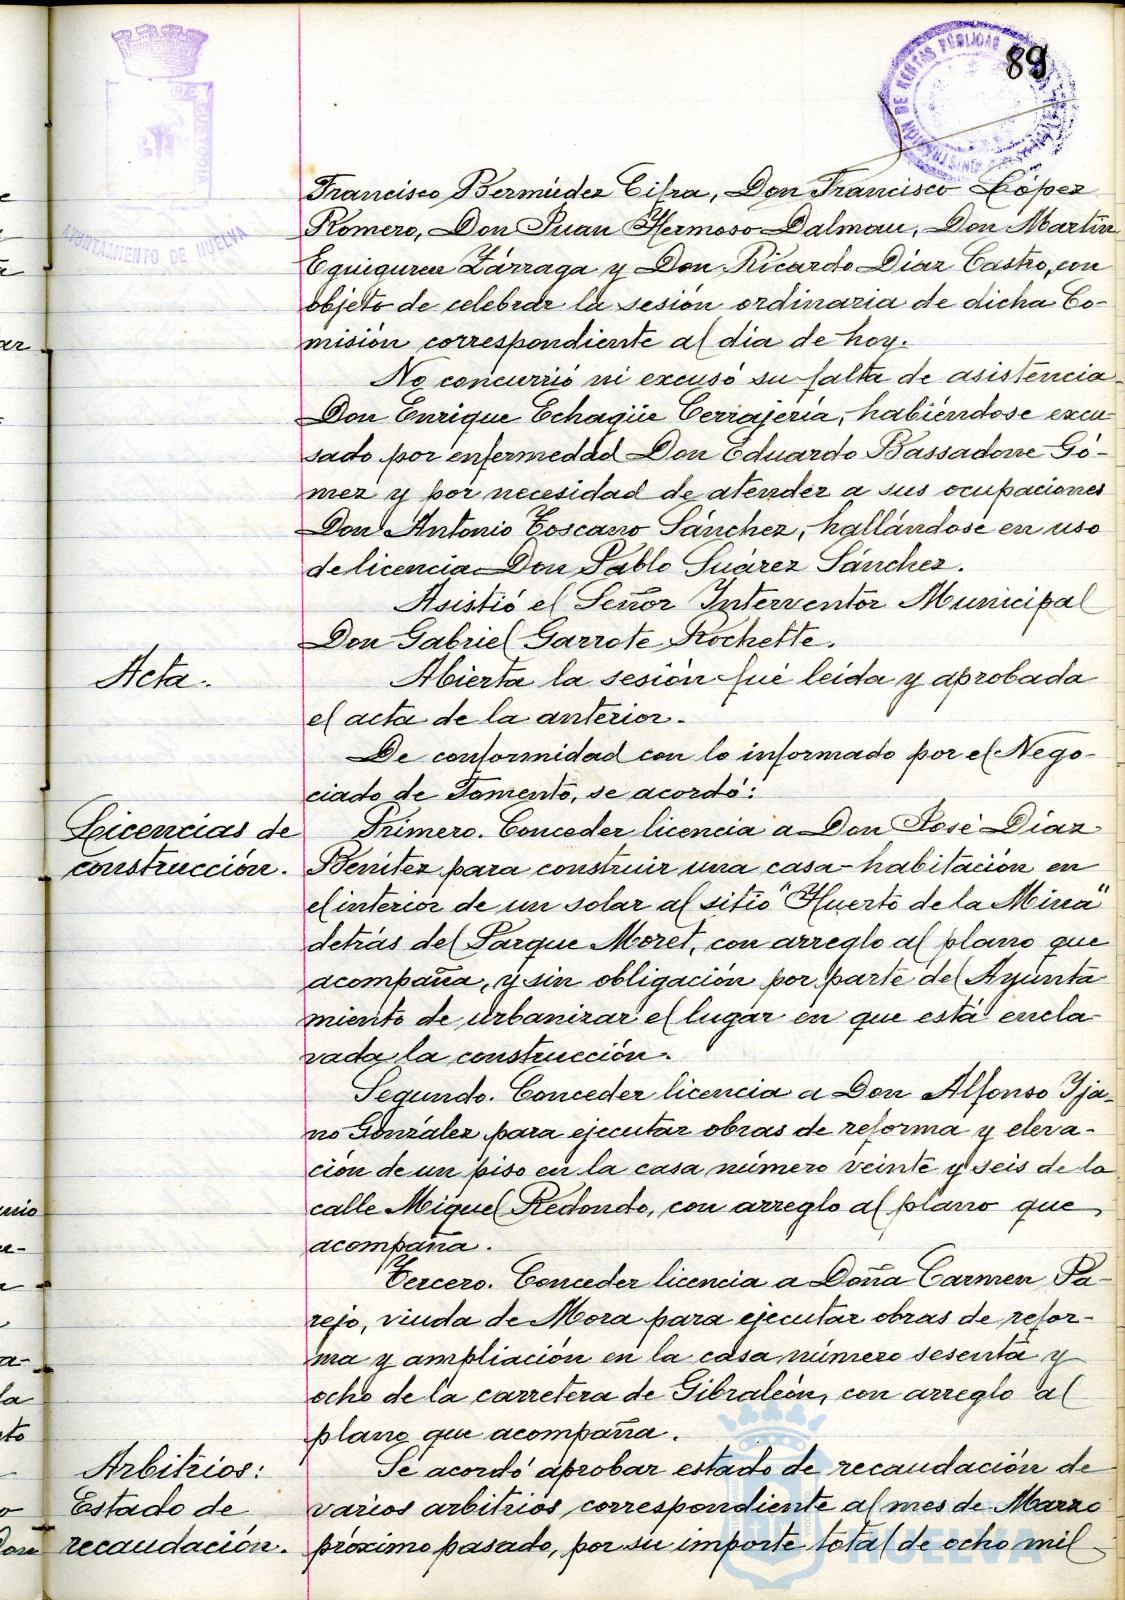 89
AYUNTAMIENTO DE HUELVA
Francisco Bermúdez Cifra, Don Francisco López
Romero, Don Juan Hermoso Dalmau, Don Martín
Eguiguren Zárraga y Don Ricardo Díaz Castro, con
objeto de celebrar la sesión ordinaria de dicha Co-
misión correspondiente al día de hoy.
No concurrió ni excusó su falta de asistencia
Don Enrique Echagüe Cerrajería, habiéndose excu-
sado por enfermedad Don Eduardo Bassadone Gó-
mez y por necesidad de atender a sus ocupaciones
Don Antonio Toscano Sánchez, hallándose en uso
de licencia Don Pablo Suárez Sánchez.
Asistió el Señor Interventor Municipal
Don Gabriel Garrote Rochette.
Acta.
Abierta la sesión fué leída y aprobada
el acta de la anterior.
De conformidad con lo informado por el Nego-
ciado de Fomento, se acordó:
Licencias de
construcción.
Primero. Conceder licencia a Don José Díaz
Benítez para construir una casa-habitación en
el interior de un solar al sitio "Huerto de la Mirea"
detrás del Parque Moret, con arreglo al plano que
acompaña, y sin obligación por parte del Ayunta
miento de urbanizar el lugar en que está encla-
vada la construcción.
Segundo. Conceder licencia a Don Alfonso Yja-
no González para ejecutar obras de reforma y eleva-
ción de un piso en la casa número veinte y seis de la
calle Miguel Redondo, con arreglo al plano que
acompaña.
Tercero. Conceder licencia a Doña Carmen Pa-
rejo, viuda de Mora para ejecutar obras de refor-
ma y ampliación en la casa número sesenta y
ocho de la carretera de Gibraleón, con arreglo al
plano que acompaña.
Arbitrios:
Estado de
recaudación.
Se acordó aprobar estado de recaudación de
varios arbitrios correspondiente al mes de Marzo
próximo pasado, por su importe total de ocho mil
HUELVA